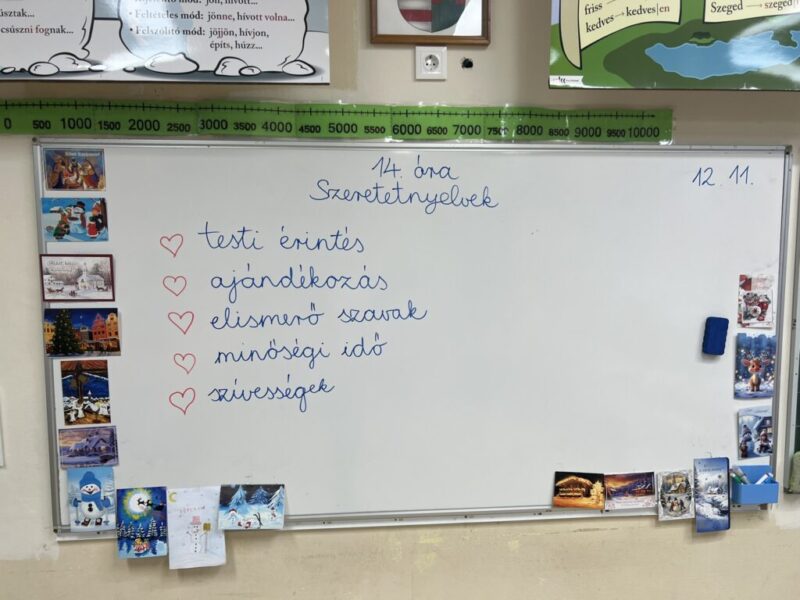 jöjjön, hívott...
úsztak...
• Feltételes mód: jönne, hívott volna...
csúszni fognak...
• Felszólító mód: jöjjön, hívjon,
építs, húzz...
friss
kedves → kedves|en
Szeged → szeged
0 500 1000 1500 2000 2500 3000 3500 4000 4500 5000 5500 6000 6500 7000 7500 8000 8500 9000 9500 10000
14. óra
12. 11.
Szeretetnyelvek
testi érintés
ajándékozás
elismerő szavak
minőségi idő
szívességek